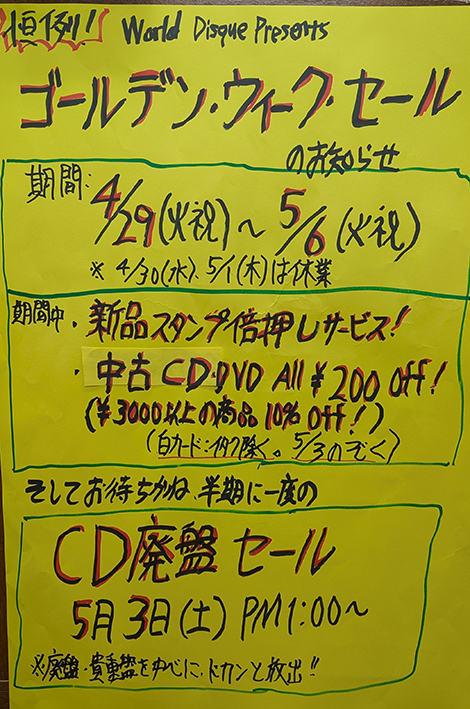 恒例! World Disque Presents
ゴールデン・ウィーク・セール
のお知らせ
期間:
4/29(火祝)~5/6(火祝)
※ 4/30(水)、5/1(木)は休業
期間中・新品スタンプ倍押しサービス!
・中古 CD・DVD All ¥200 off!
(¥3000以上の商品10% Off!)
(白カード:イタク除く。5/3のぞく)
そしてお待ちかね、半期に一度の
CD廃盤セール
5月3日(土) PM1:00~
※廃盤・貴重盤を中心に、ドカンと放出!!